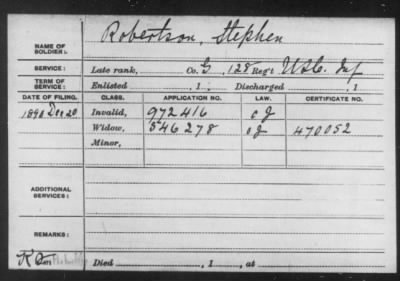 Robertson, Stephen
NAME OF SOLDIER:
SERVICE: Late rank, Co. G, 128 Reg't U.S.C. Inf
TERM OF SERVICE: Enlisted , 1 Discharged , 1
DATE OF FILING. CLASS. APPLICATION NO. LAW. CERTIFICATE NO.
1890 Dec 20 Invalid, 972416
Widow, 546278 470052
Minor,
ADDITIONAL SERVICES:
REMARKS:
Died , 1 , at